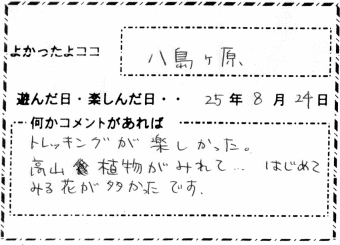 よかったよココ
八島ヶ原、
遊んだ日・楽しんだ日・・ 25年 8月 24日
何かコメントがあれば
トレッキングが楽しかった。
高山植物がみれて… はじめて
みる花が多かったです.